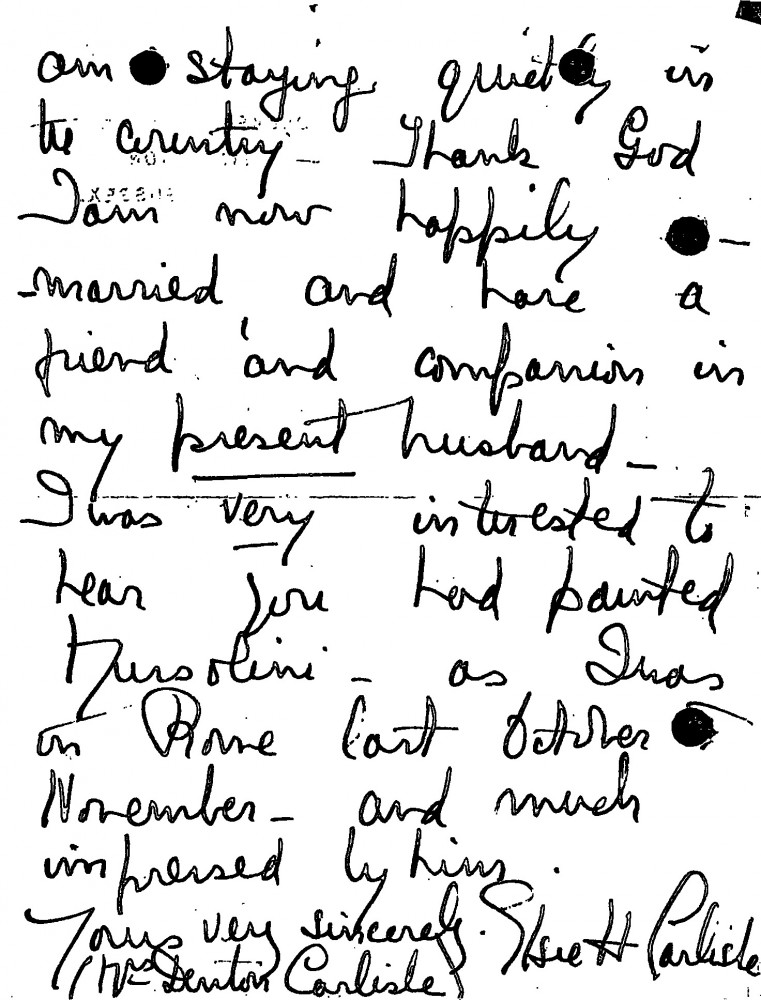 am staying quietly in
the country - Thank God
I am now happily -
-married and have a
friend and companion in
my present husband -
I was very interested to
hear you had painted
Mussolini - as I was
in Rome last October
November - and much
impressed by him.
Yours very sincerely. Elsie H Carlisle
(Mrs Denton Carlisle)